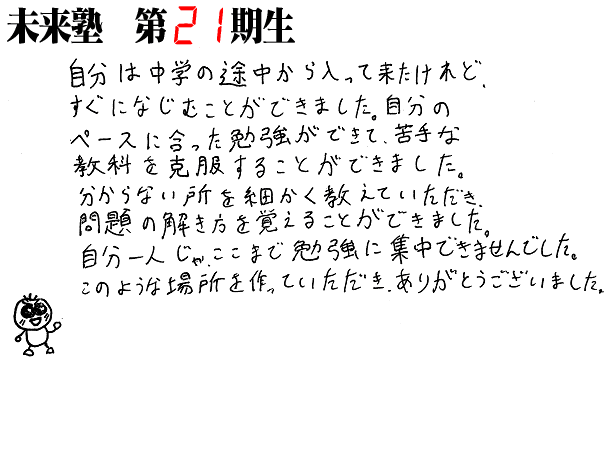 未来塾 第21期生
自分は中学の途中から入って来たけれど、
すぐになじむことができました。自分の
ペースに合った勉強ができて、苦手な
教科を克服することができました。
分からない所を細かく教えていただき、
問題の解き方を覚えることができました。
自分一人じゃ、ここまで勉強に集中できませんでした。
このような場所を作っていただき、ありがとうございました。